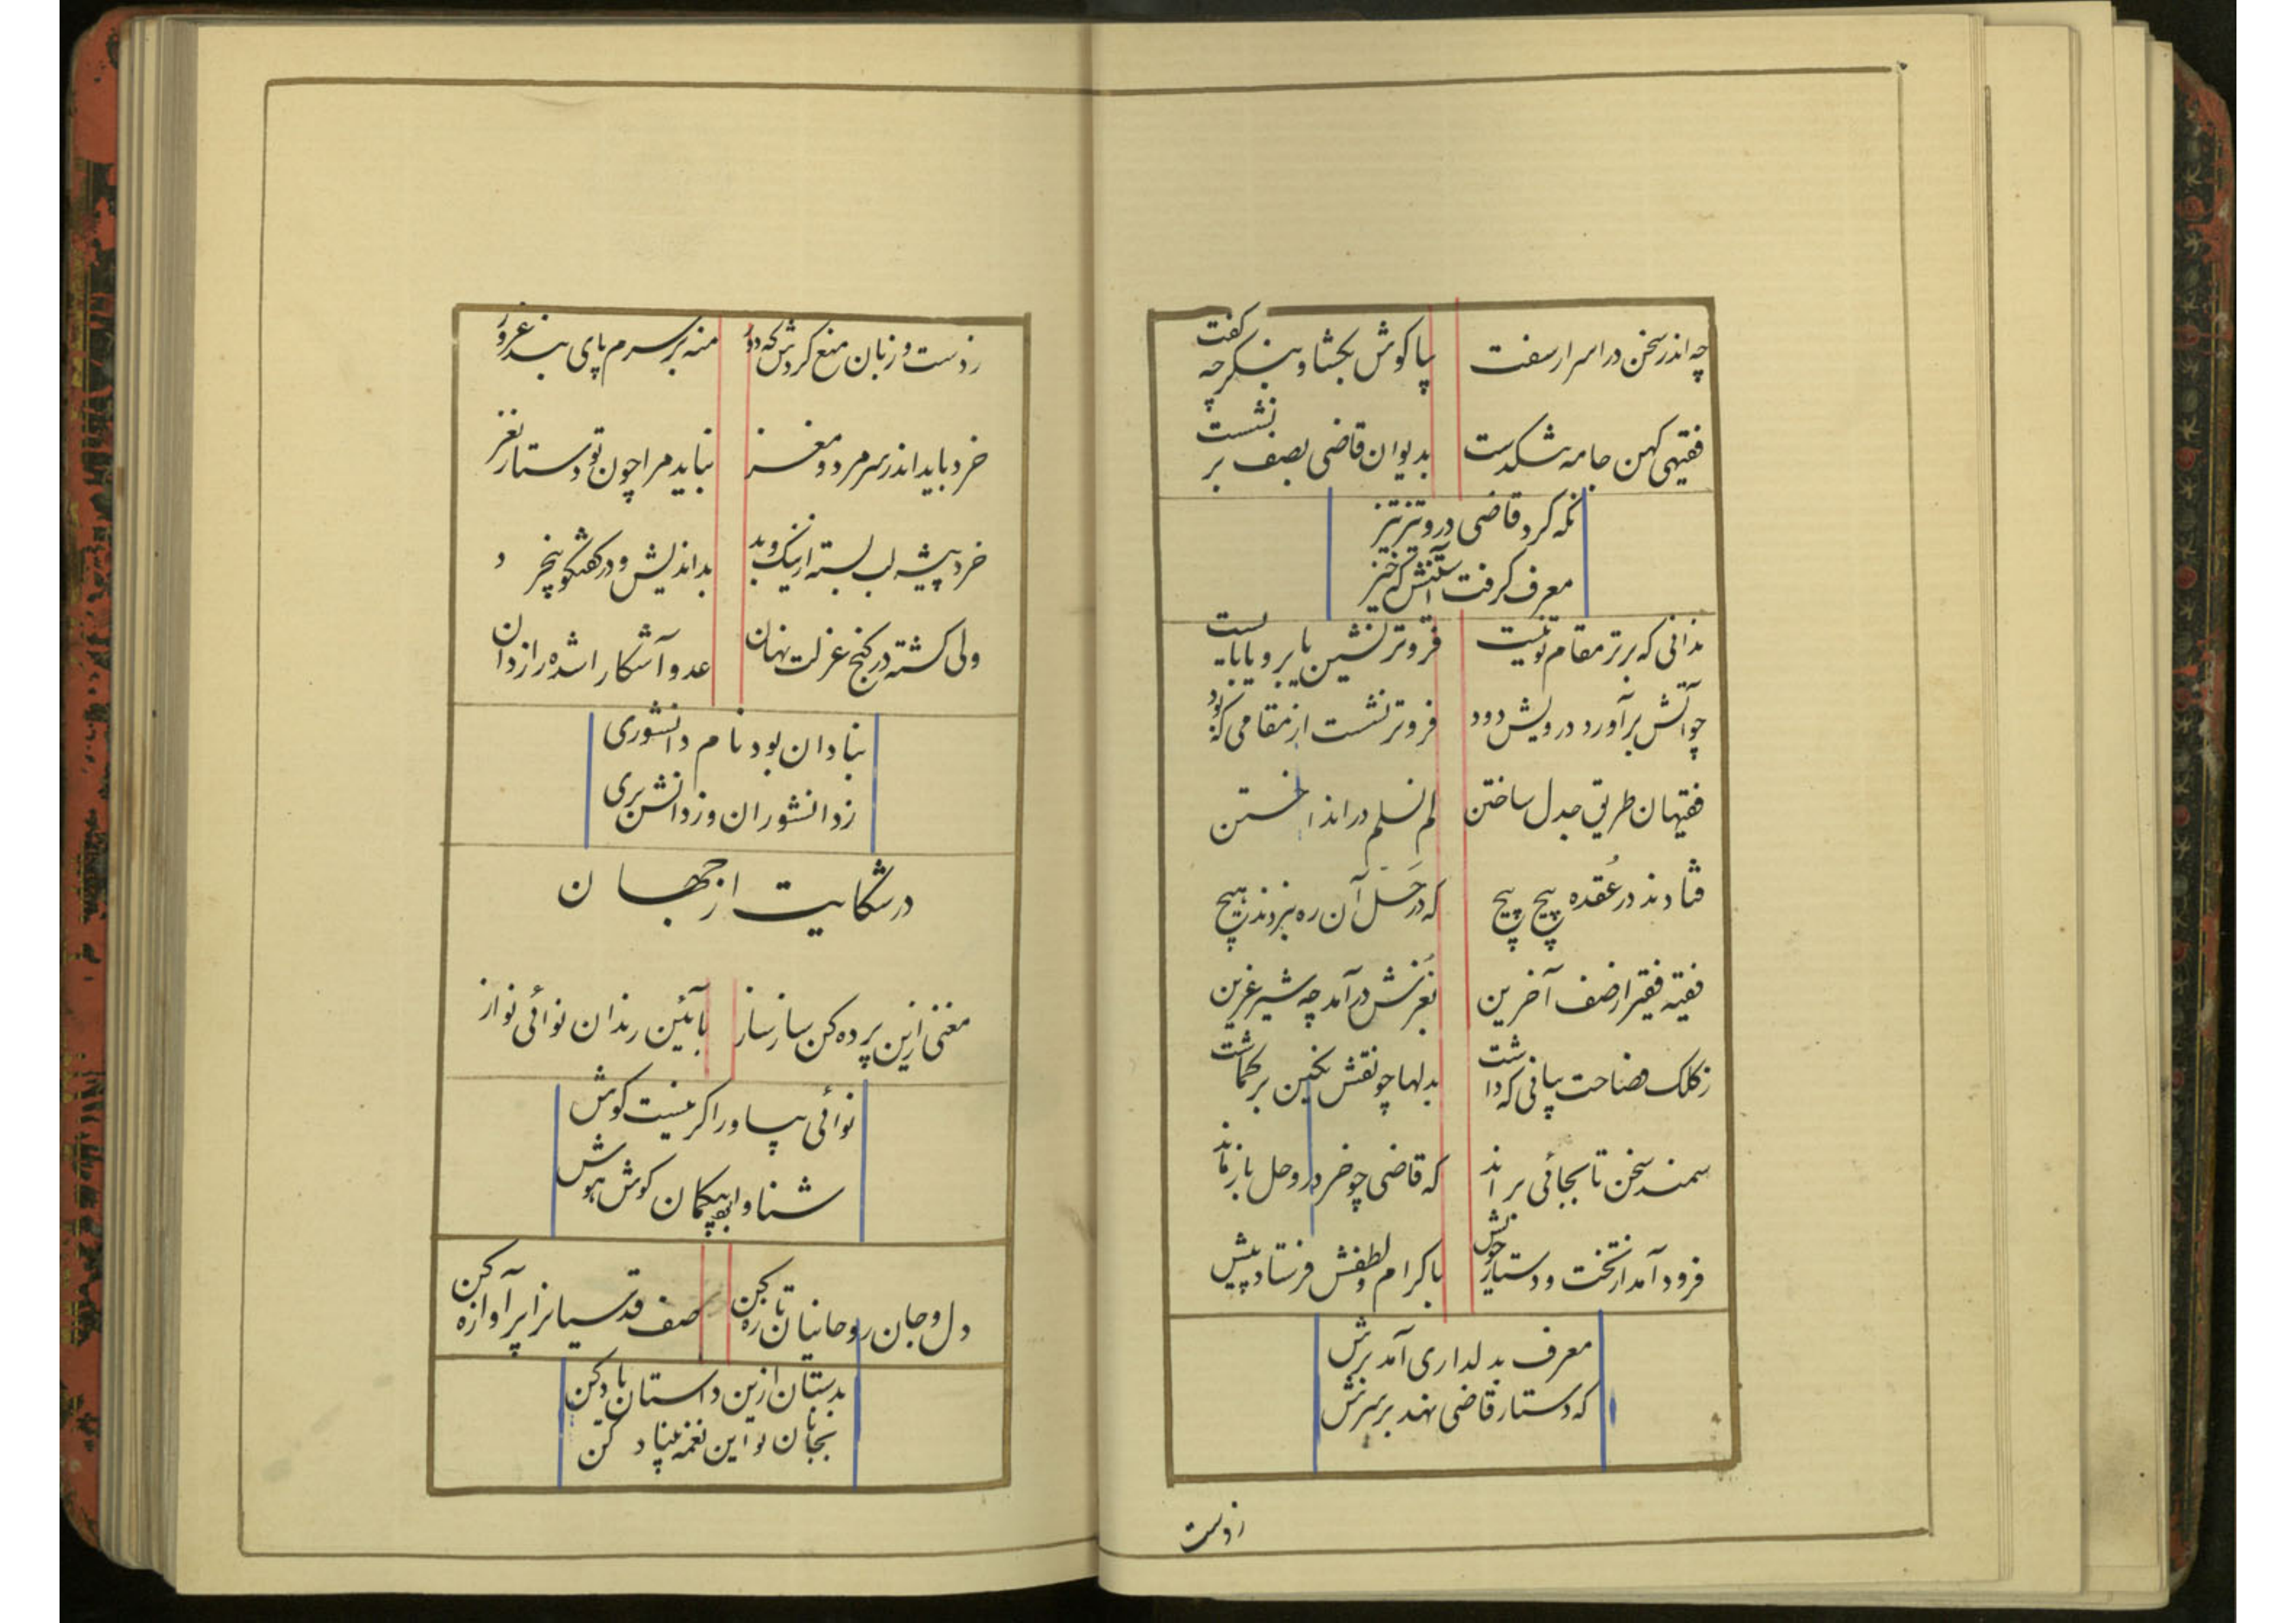 چه اندر سخن در اسرار سفت بیا گوش بگشا و بنگر چه گفت
فقیهی کهن جامه تنگدست بدیوان قاضی بصف بر نشست
نگه کرد قاضی درو تیز تیز
معرف گرفت آستینش که خیز
ندانی که برتر مقام تو نیست فروتر نشین یا برو یا بایست
چو آتش برآورد درویش دود فروتر نشست از مقامی که بود
فقیهان طریق جدل ساختن لم لانسلم در انداختن
فتادند در عقده پیچ پیچ که در حل آن ره نبردند هیچ
فقیه فقیر از صف آخرین بغرنش درآمد چه شیر غرین
ز کلک فصاحت بیانی که داشت بدلها چو نقش نگین بر گماشت
سمند سخن تا بجائی براند که قاضی چو خر در وحل باز ماند
فرود آمد از تخت و دستار خویش باکرام و لطفش فرستاد پیش
معرف بدلداری آمد برش
که دستار قاضی نهد بر سرش
زدست
زدست و زبان منع کردش که دور منه بر سرم پای بند غرور
خرد باید اندر سر مرد و مغز نباید مرا چون تو دستار نغز
خرد پیشه لب بسته از نیک و بد بداندیش در گفتگو بیخرد
ولی گشته در کنج عزلت نهان عدو آشکارا شده رازدان
بنادان بود نام دانشوری
زدانشوران وز دانش بری
در شکایت از جهان
مغنی ازین پرده کن ساز ساز بآئین رندان نوائی نواز
نوائی بیاور اگر نیست گوش
شناوا بهیکمان گوش هوش
دل و جان روحانیان تازه کن صف قدسیانرا پر آوازه کن
بدستان ازین داستان یاد کن
بجانان تو این نغمه بنیاد کن